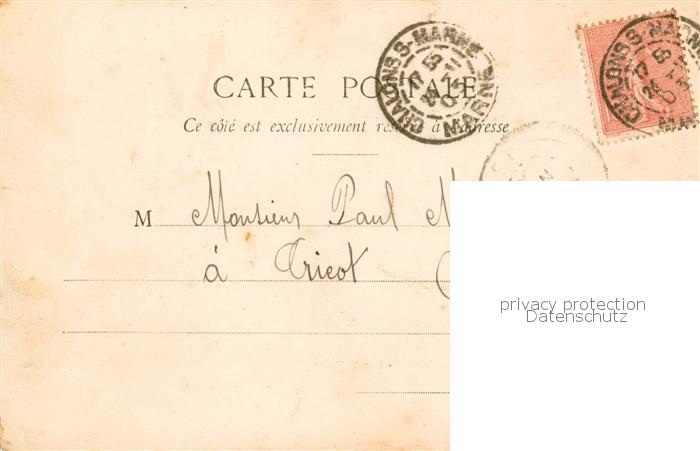 CHALONS S-MARNE
MARNE
CHALONS S-MARNE
CARTE POSTALE
Ce côté est exclusivement réservé à l'adresse
M Monsieur Paul
à Tricot
privacy protection
Datenschutz